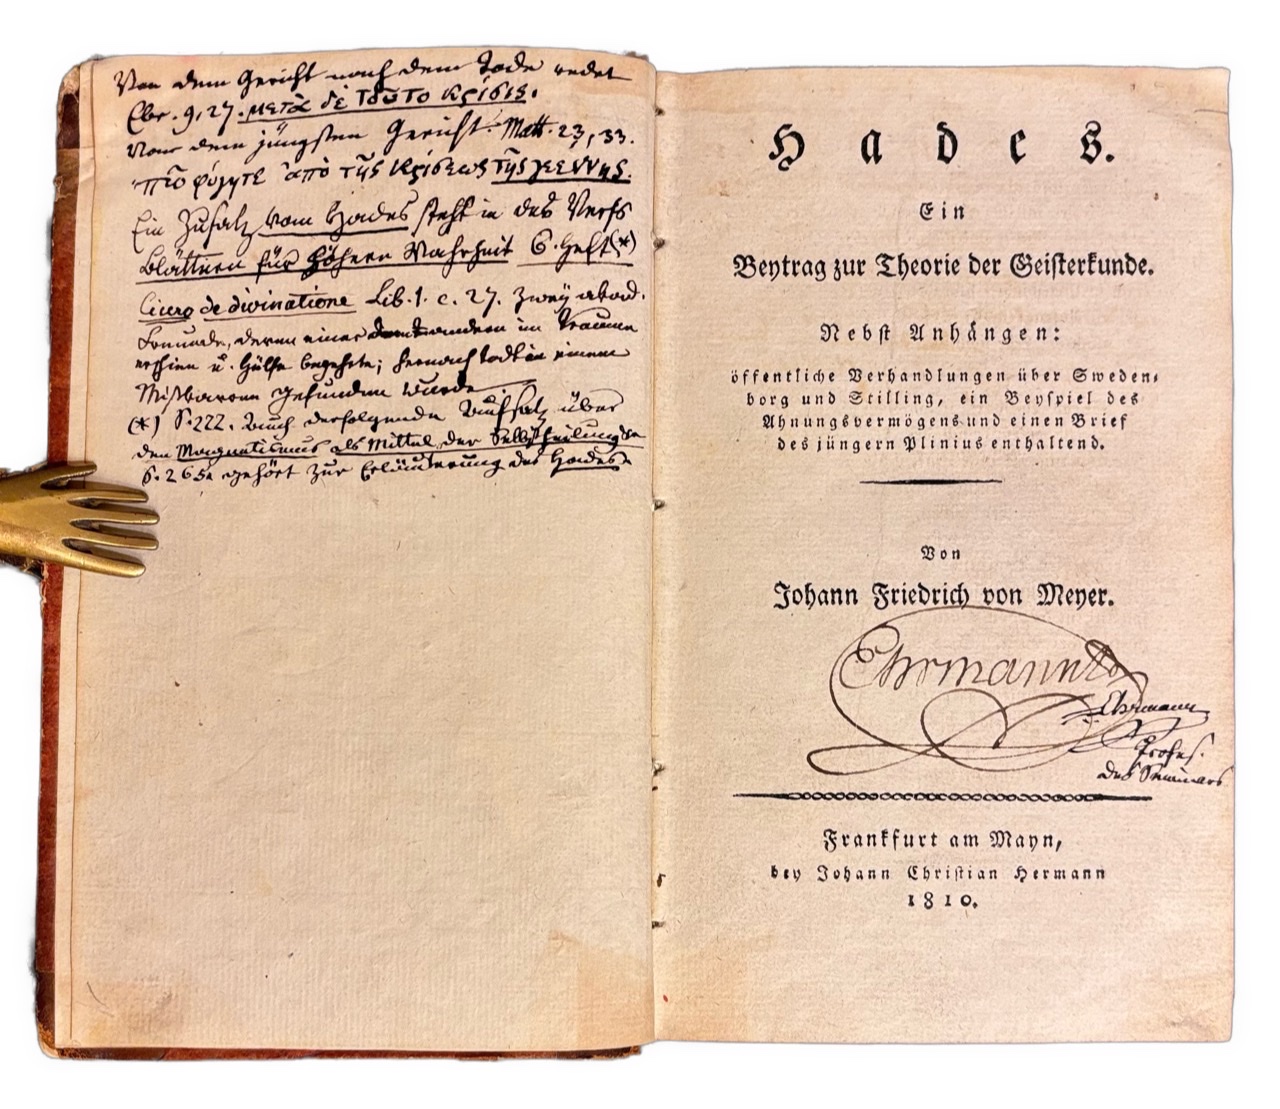 Von dem Gericht nach dem Tode redet
Ebr. 9, 27. μετὰ δὲ τοῦτο κρίσις.
Von dem jüngsten Gericht. Matt. 23, 33.
φύγητε ἀπὸ τῆς κρίσεως τῆς γεέννης.
Ein Zusatz vom Hades steht in des Verfs
Blättern für höhere Wahrheit 6. Heft (*)
Cicero de divinatione Lib. 1. c. 27. zweÿ arkad.
Freunde, deren einer dem andern im Traume
erschien u. Hülfe begehrte; hernach todt in einem
Mistkarren gefunden wurde
(*) S. 222. Auch der folgende Aufsatz über
den Magnetismus als Mittel der Selbstheilung
S. 265. gehört zur Erläuterung des Hades.
Hades.
Ein
Beytrag zur Theorie der Geisterkunde.
Nebst Anhängen:
öffentliche Verhandlungen über Sweden-
borg und Stilling, ein Beyspiel des
Ahnungsvermögens und einen Brief
des jüngern Plinius enthaltend.
Von
Johann Friedrich von Meyer.
Ehrmann
Ehrmann
Profes.
des Seminars
Frankfurt am Mayn,
bey Johann Christian Hermann
1810.